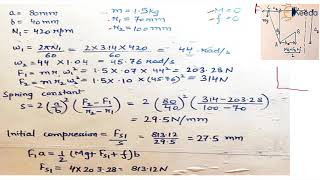 a = 80mm
b = 40mm
N₁ = 420 rpm
m = 1.5kg
r₁ = 70mm
r₂ = 100mm
Keeda
ω₁ = 2πN₁/60 = 2×3.14×420/60 = 44 rad/s
ω₂ = 44 × 1.04 = 45.76 rad/s
F₁ = m r₁ ω₁² = 1.5×.07×44² = 203.28N
F₂ = m r₂ ω₂² = 1.5×.10×(45.76)² = 314N
Spring constant
s = 2(a/b)²(F₂-F₁/r₂-r₁) = 2(80/40)²(314-203.28/100-70)
= 29.5N/mm
Initial compression = Fs₁/s = 813.12/29.5 = 27.5 mm
F₁a = 1/2 (Mg+Fs₁+f)b
Fs₁ = 4×203.28 = 813.12N